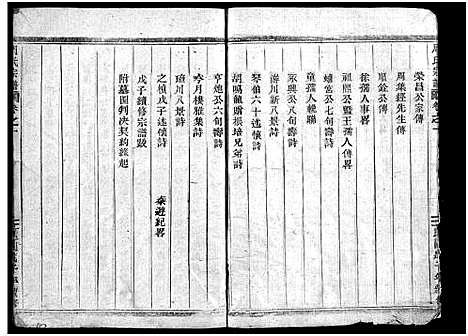 榮昌公家傳
周葉經先生傳
順銓公傳
徐孺人事畧
祖熙公暨王孺人傳
瑞宏公七旬序
童孺人輓聯
永興公八旬壽詩
瑄川新八景詩
琴伯六十述懷詩
胡鳴龍贈根培兄弟詩
亨炮公六旬壽詩
吟月樓雅集詩
瑄川八景詩
之楨戊子述懷詩
東遊紀畧
戊子續修宗譜跋
附墓圖判決契約緣起
周氏宗譜